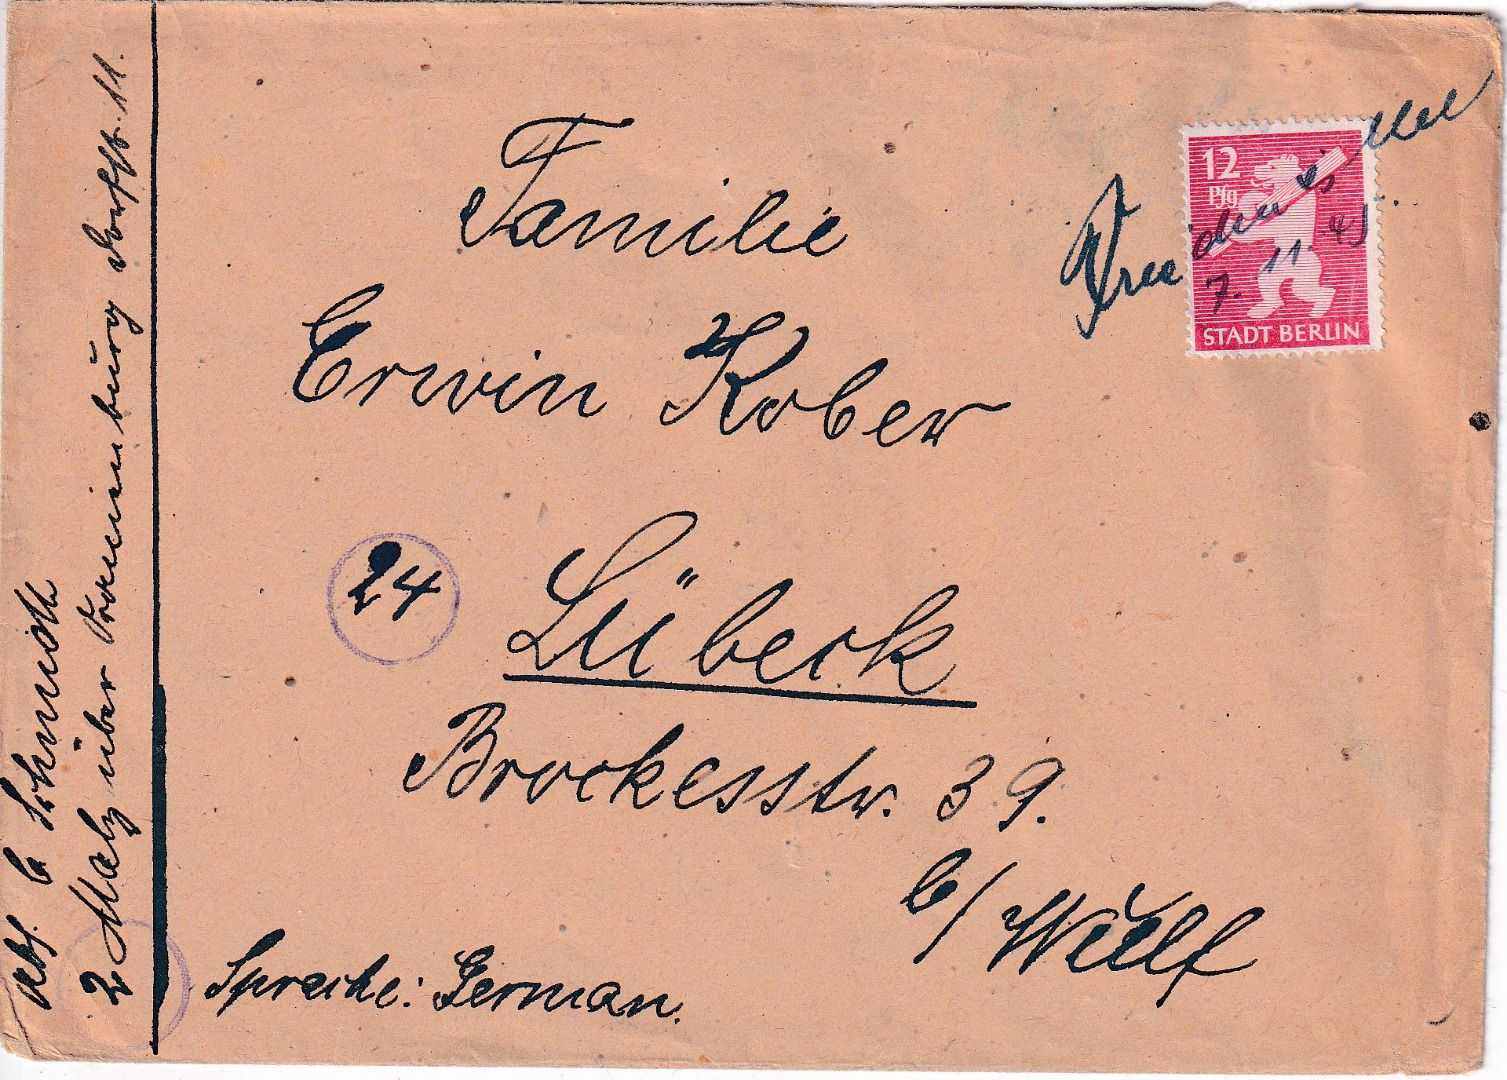 Familie
Erwin Kober
24 Lübeck
Brockesstr. 39.
b/ Wulf
Sprache: German.
12
Pfg
STADT BERLIN
7. 11. 45
Abs. C Schmidt
2 Malz über Oranienburg Dorfstr. 11.